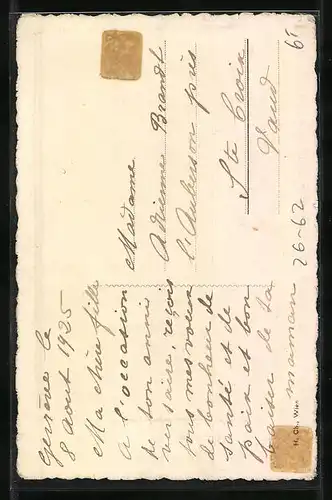 Genève le
8 aout 1925
Ma chère fille
A l'occasion
de ton anni
versaire, reçois
tous mes vœux
de bonheur de
santé et de
paix et bon
baiser de ta
maman
Madame
Adrienne Brandt
l'Auberson près
Ste Croix
Vaud
26-62
61
H. Ch., Wien